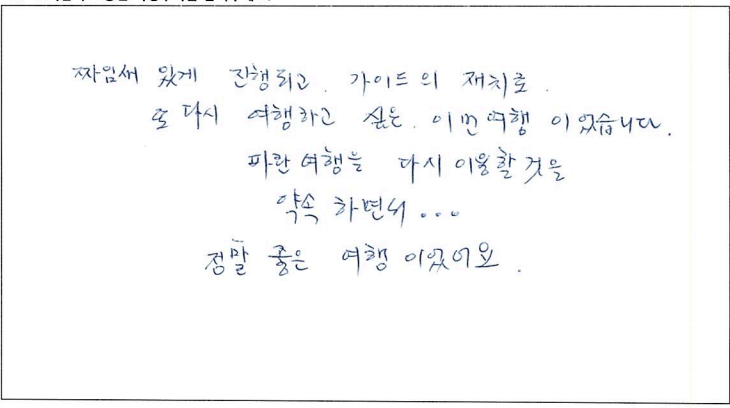 짜임새 있게 진행되고. 가이드의 재치로.
또 다시 여행하고 싶은. 이번 여행 이었습니다.
파란여행을 다시 이용할 것을
약속 하면서...
정말 좋은 여행 이었어요.